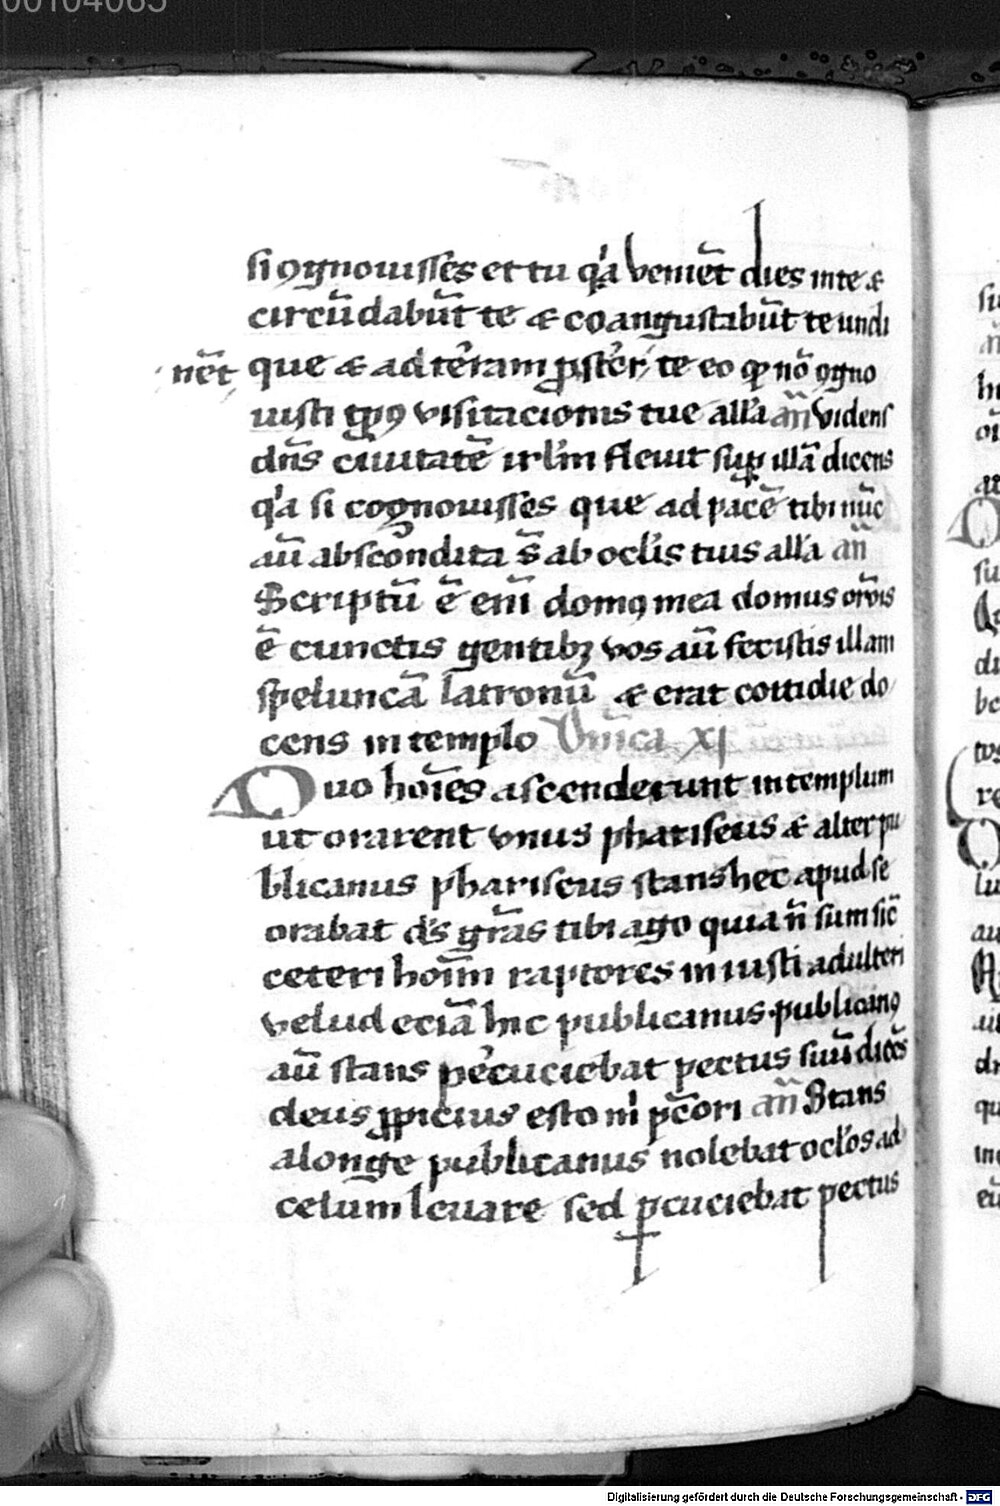 00104065
si ꝯgnouisses et tu q'a venie᷑t dies in te ⁊
circūdabūt te ⁊ coangustabūt te undi
nēt que ⁊ ad t'ram ꝓst'r te eo ꝙ nō ꝯgno
uisti tp̄ꝯ visitacionis tue all'a an̄ Videns
dn̄s ciuitatē irl'm fleuit sup illā dicens
q'a si cognouisses que ad pacē tibi nūc
aū abscondita s̄ ab ocl'is tuis all'a an̄
Scriptū ē eni domꝯ mea domus or̄ois
ē cunctis gentibꝫ vos aū fecistis illam
speluncā latronū ⁊ erat cottidie do
cens in templo Dn̄ica xj
Duo hoīes ascenderunt in templum
ut orarent vnus phariseus ⁊ alter pu
blicanus phariseus stans hec apud se
orabat ds̄ gr̄as tibi ago quia n̄ sum sic̄
ceteri hoīm raptores iniusti adulteri
velud eciā hic publicanus publicanꝯ
aū stans p'cuciebat pectus suū dicēs
deus ꝓpicius esto m' pc̄cori an̄ Stans
alonge publicanus nolebat ocl'os ad
celum leuare sed ꝑcuciebat pectus
Digitalisierung gefördert durch die Deutsche Forschungsgemeinschaft - DFG